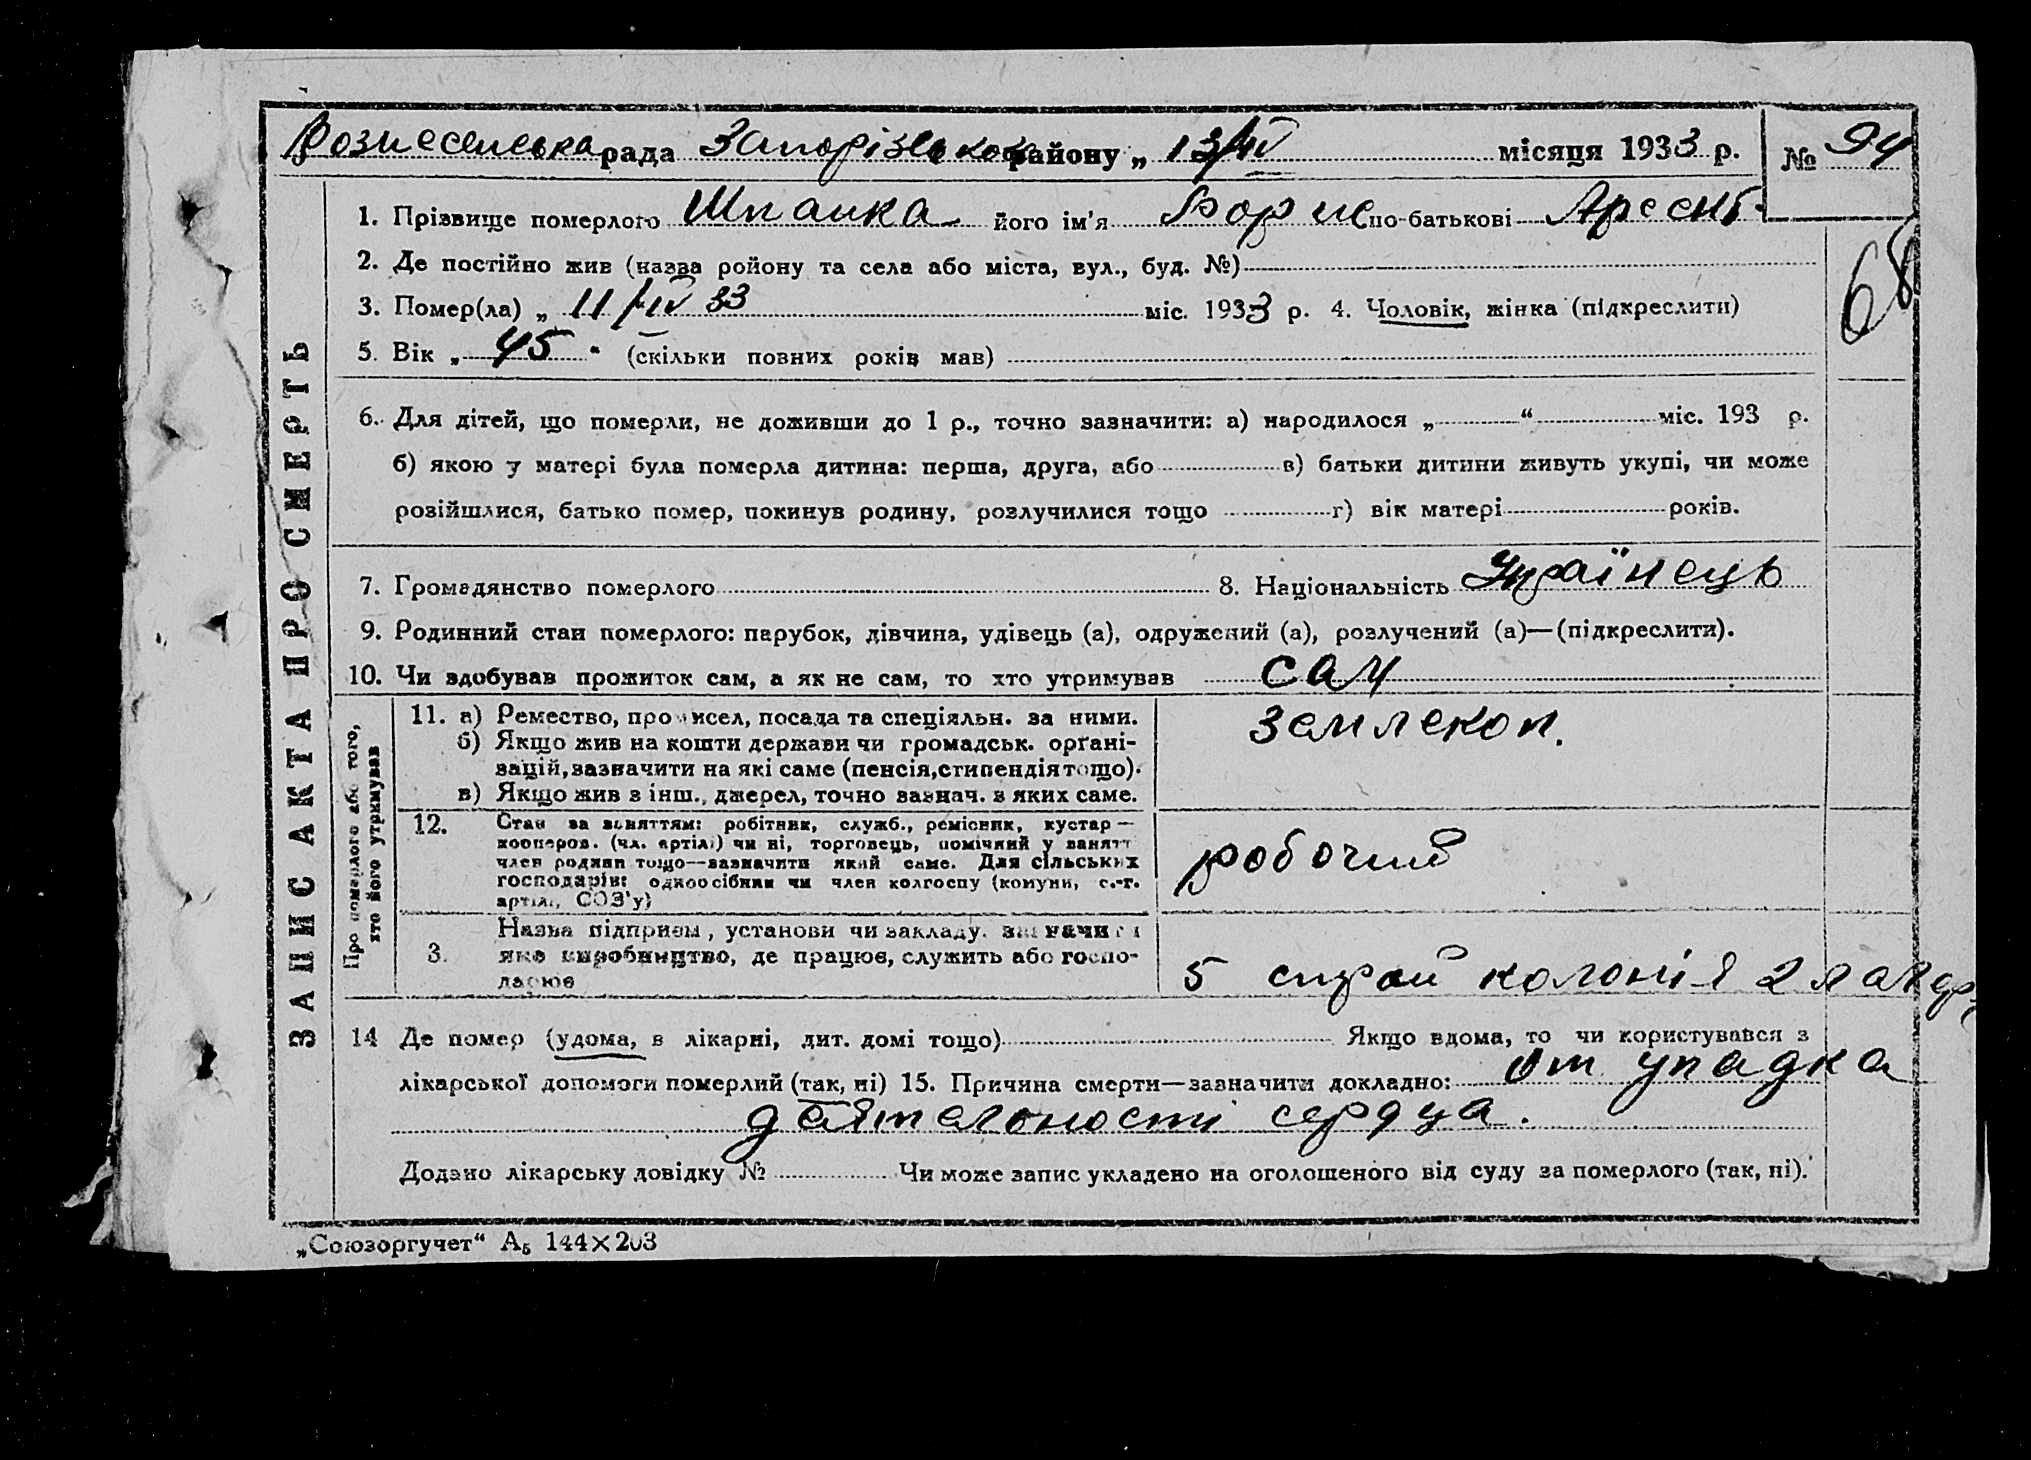 Вознесенська рада Запорізького району „ 13/IV місяця 1933 р. № 94
1. Прізвище померлого Шпанка його ім'я Борис по-батькові Арсент.
68
2. Де постійно жив (назва ройону та села або міста, вул., буд. №)
3. Помер(ла) „ 11/IV 33 міс. 1933 р. 4. Чоловік, жінка (підкреслити)
5. Вік „ 45 " (скільки повних років мав)
6. Для дітей, що померли, не доживши до 1 р., точно зазначити: а) народилося „ “ міс. 193 р.
б) якою у матері була померла дитина: перша, друга, або в) батьки дитини живуть укупі, чи може
розійшлися, батько помер, покинув родину, розлучилися тощо г) вік матері років.
7. Громадянство померлого 8. Національність Українець
9. Родинний стан померлого: парубок, дівчина, удівець (а), одружений (а), розлучений (а)—(підкреслити).
10. Чи здобував прожиток сам, а як не сам, то хто утримував сам
ЗАПИС АКТА ПРО СМЕРТЬ
Про померлого або того, хто його утримував
11. а) Ремество, промисел, посада та спеціяльн. за ними. землекоп.
б) Якщо жив на кошти держави чи громадськ. орґані-
зацій, зазначити на які саме (пенсія, стипендія тощо).
в) Якщо жив з інш., джерел, точно зазнач. з яких саме.
12. Стан за заняттям: робітник, служб., ремісник, кустар—
кооперов. (чл. артілі) чи ні, торговець, помічний у занятт
член родини тощо—зазначити який саме. Для сільських
господарів: одноосібник чи член колгоспу (комуни, с.-г.
артілі, СОЗ'у)
робочий
Назва підприєм, установи чи закладу. зазначити
3. яке виробництво, де працює, служить або госпо-
дарює
5 строй колонія 2
14 Де помер (удома, в лікарні, дит. домі тощо) Якщо вдома, то чи користувався з
лікарської допомоги померлий (так, ні) 15. Причина смерти—зазначити докладно: от упадка
деятельності сердца.
Додано лікарську довідку № Чи може запис укладено на оголошеного від суду за померлого (так, ні).
„Союзоргучет“ А₅ 144×203